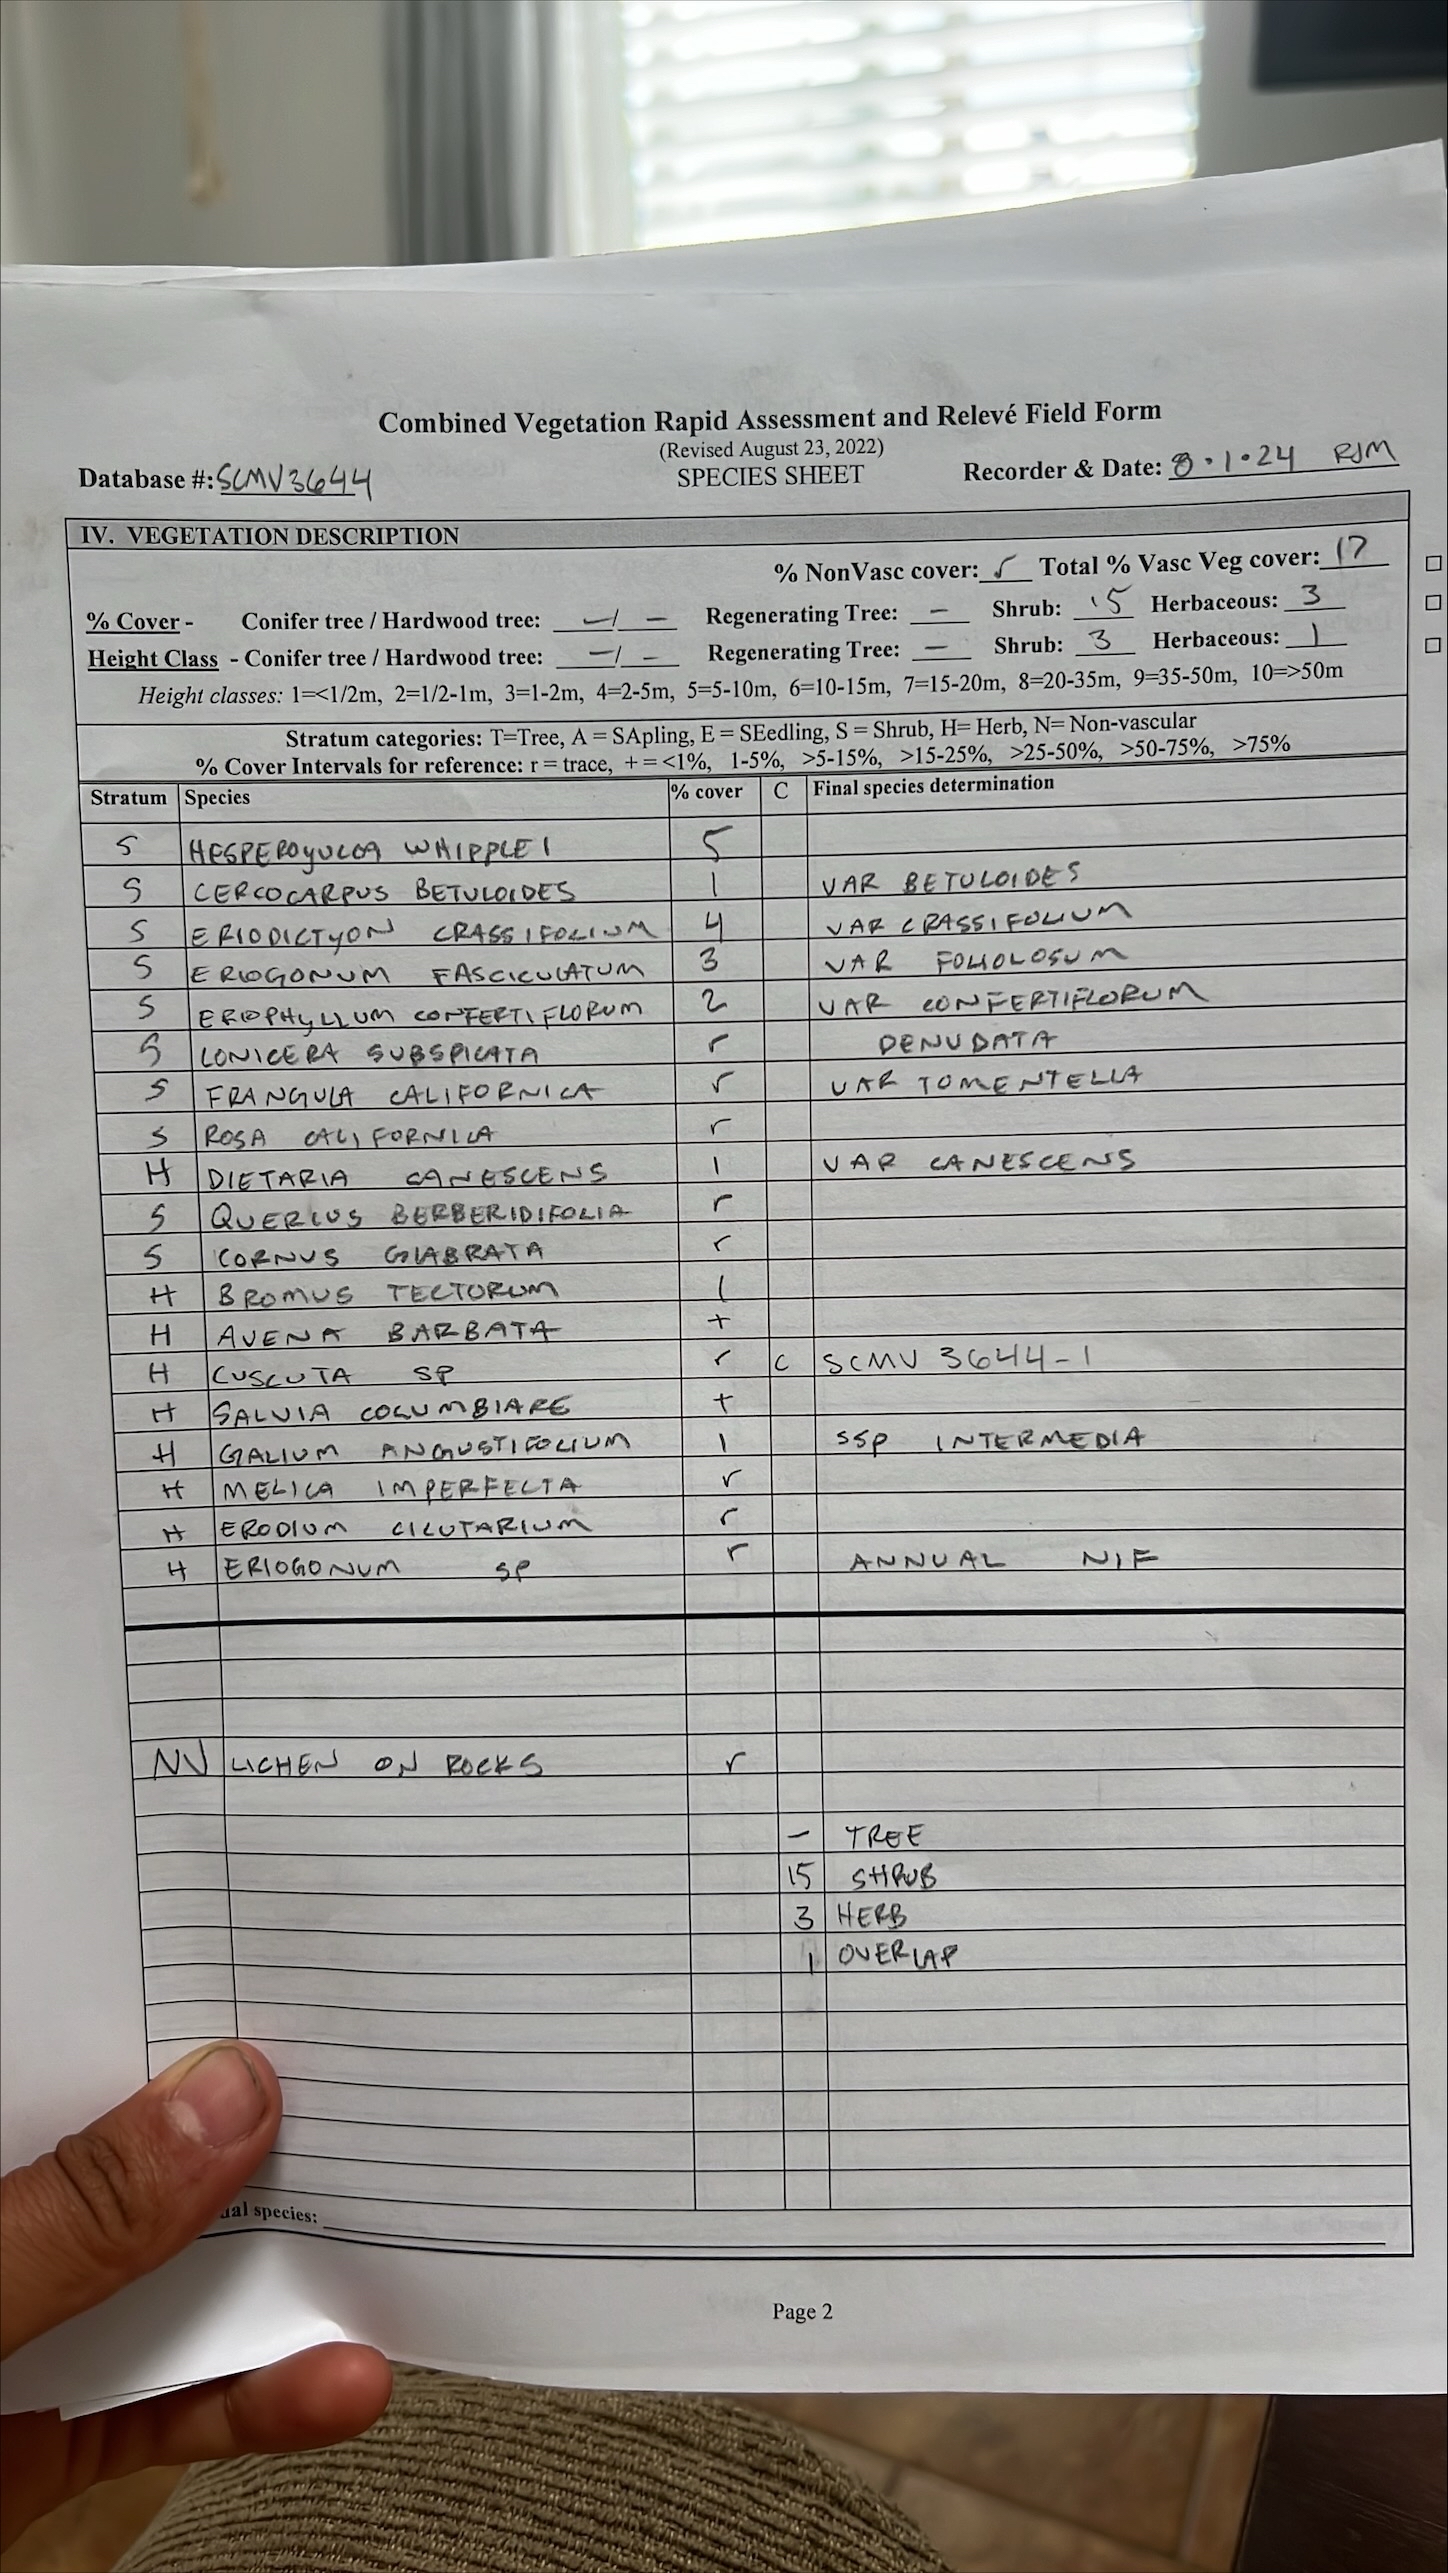 Combined Vegetation Rapid Assessment and Relevé Field Form
(Revised August 23, 2022)
Database #: SCMV3644 SPECIES SHEET Recorder & Date: 8.1.24 RJM
IV. VEGETATION DESCRIPTION
% NonVasc cover: r Total % Vasc Veg cover: 17
% Cover - Conifer tree / Hardwood tree: - / - Regenerating Tree: - Shrub: 15 Herbaceous: 3
Height Class - Conifer tree / Hardwood tree: - / - Regenerating Tree: - Shrub: 3 Herbaceous: 1
Height classes: 1=<1/2m, 2=1/2-1m, 3=1-2m, 4=2-5m, 5=5-10m, 6=10-15m, 7=15-20m, 8=20-35m, 9=35-50m, 10=>50m
Stratum categories: T=Tree, A = SApling, E = SEedling, S = Shrub, H= Herb, N= Non-vascular
% Cover Intervals for reference: r = trace, + = <1%, 1-5%, >5-15%, >15-25%, >25-50%, >50-75%, >75%
Stratum Species % cover C Final species determination
S HESPEROYUCCA WHIPPLEI 5
S CERCOCARPUS BETULOIDES 1 VAR BETULOIDES
S ERIODICTYON CRASSIFOLIUM 4 VAR CRASSIFOLIUM
S ERIOGONUM FASCICULATUM 3 VAR FOLIOLOSUM
S ERIOPHYLLUM CONFERTIFLORUM 2 VAR CONFERTIFLORUM
S LONICERA SUBSPICATA r DENUDATA
S FRANGULA CALIFORNICA r VAR TOMENTELLA
S ROSA CALIFORNICA r
H DIETARIA CANESCENS 1 VAR CANESCENS
S QUERCUS BERBERIDIFOLIA r
S CORNUS GLABRATA r
H BROMUS TECTORUM 1
H AVENA BARBATA +
H CUSCUTA SP r C SCMV 3644-1
H SALVIA COLUMBIARE +
H GALIUM ANGUSTIFOLIUM 1 SSP INTERMEDIA
H MELICA IMPERFECTA r
H ERODIUM CICUTARIUM r
H ERIOGONUM SP r ANNUAL NIF
NV LICHEN ON ROCKS r
- TREE
15 SHRUB
3 HERB
1 OVERLAP
species:
Page 2